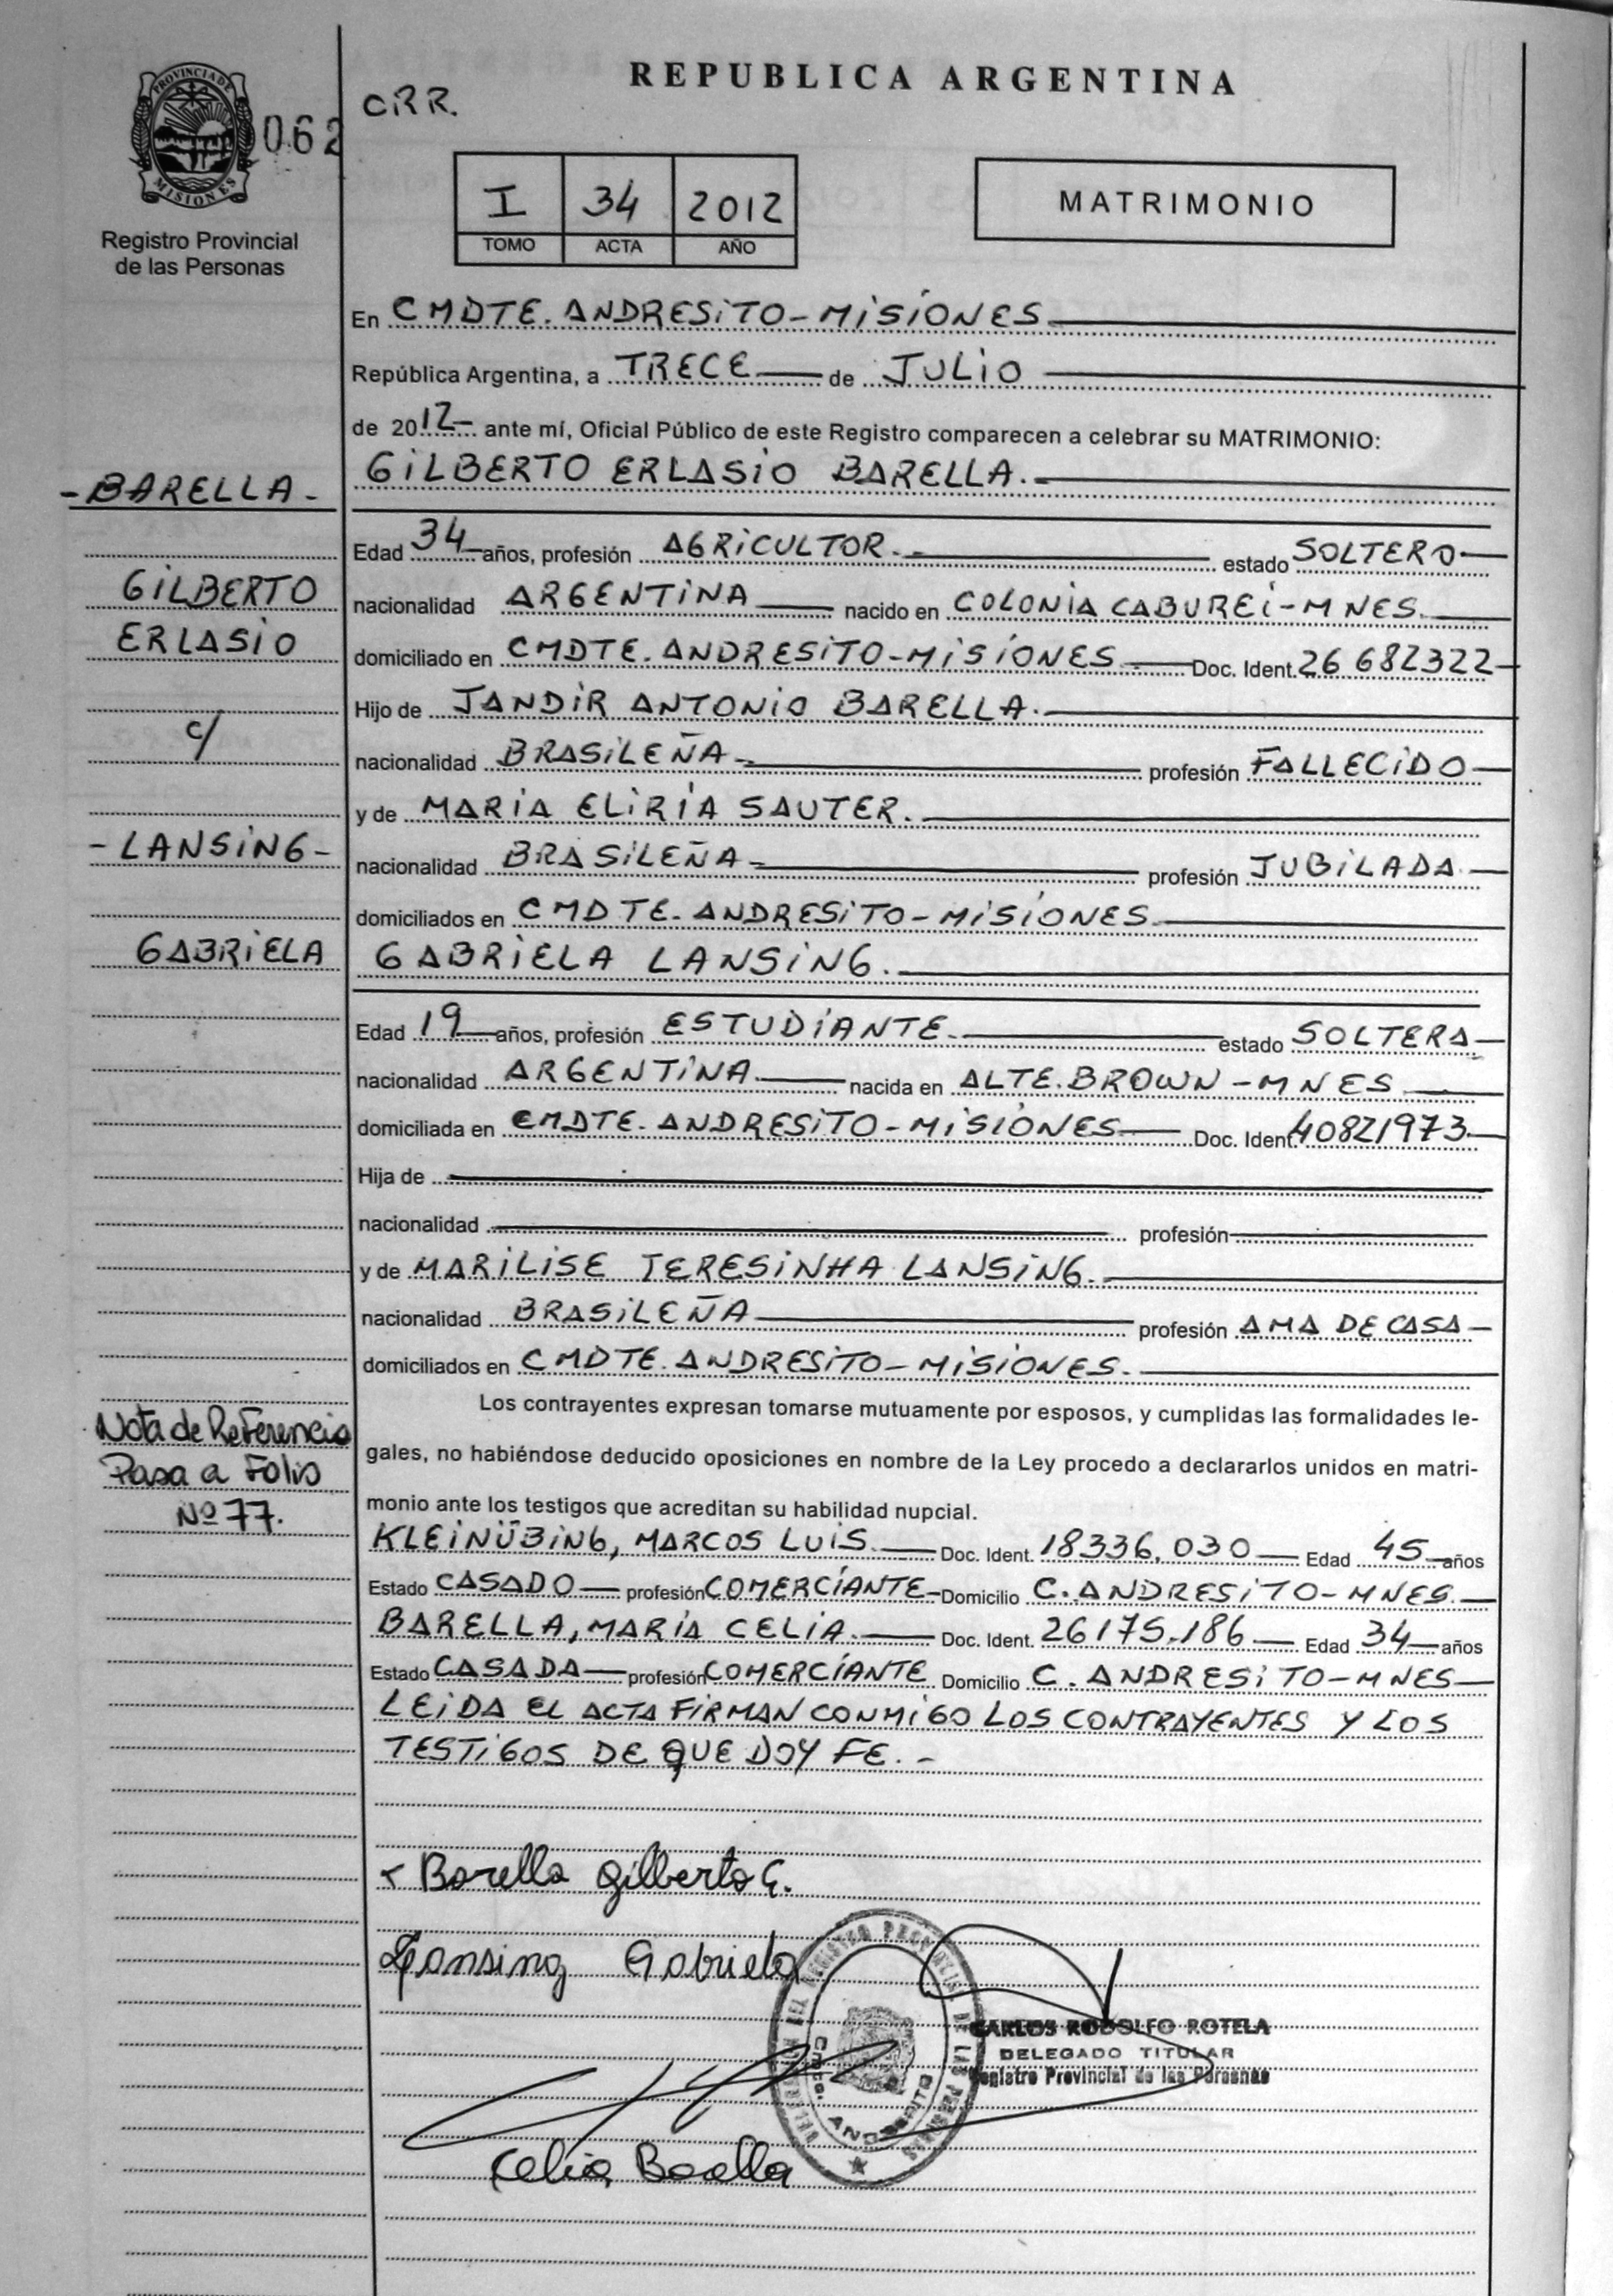 REPUBLICA ARGENTINA
CRR.
PROVINCIA DE
MISIONES
062
Registro Provincial
de las Personas
I 34 2012
TOMO ACTA AÑO
MATRIMONIO
En CMDTE. ANDRESiTO-MiSiONES
República Argentina, a TRECE de JULiO
de 2012 ante mí, Oficial Público de este Registro comparecen a celebrar su MATRIMONIO:
GiLBERTO ERLASiO BARELLA.-
-BARELLA-
Edad 34 años, profesión AGRiCULTOR.- estado SOLTERO
GiLBERTO
nacionalidad ARGENTiNA nacido en COLONiA CABUREí-MNES.
ERLASiO
domiciliado en CMDTE. ANDRESiTO-MiSiONES. Doc. Ident. 26 682322
Hijo de JANDiR ANTONiO BARELLA.
c/
nacionalidad BRASiLEÑA- profesión FALLECiDO
y de MARiA ELiRiA SAUTER.
-LANSiNG-
nacionalidad BRASiLEÑA- profesión JUBiLADA.
domiciliados en CMDTE. ANDRESiTO-MiSiONES.
GABRiELA
GABRiELA LANSiNG.
Edad 19 años, profesión ESTUDiANTE. estado SOLTERA
nacionalidad ARGENTiNA. nacida en ALTE. BROWN-MNES
domiciliada en CMDTE. ANDRESiTO-MiSiONES Doc. Ident. 40821973
Hija de
nacionalidad profesión
y de MARiLiSE TERESiNHA LANSiNG.
nacionalidad BRASiLEÑA profesión AMA DE CASA
domiciliados en CMDTE. ANDRESiTO-MiSiONES.
Los contrayentes expresan tomarse mutuamente por esposos, y cumplidas las formalidades le-
gales, no habiéndose deducido oposiciones en nombre de la Ley procedo a declararlos unidos en matri-
monio ante los testigos que acreditan su habilidad nupcial.
Nota de Referencia
Pasa a Folio
Nº 77.
KLEiNÜBiNG, MARCOS LUiS. Doc. Ident. 18336.030 Edad 45 años
Estado CASADO profesión COMERCiANTE- Domicilio C. ANDRESiTO-MNES.
BARELLA, MARíA CELiA. Doc. Ident. 26175.186 Edad 34 años
Estado CASADA profesión COMERCiANTE Domicilio C. ANDRESiTO-MNES
LEiDA EL ACTA FiRMAN CONMiGO LOS CONTRAYENTES Y LOS
TESTiGOS DE QUE DOY FE.-
Barella Gilberto E.
Lansing Gabriela
CARLOS RODOLFO ROTELA
DELEGADO TITULAR
Registro Provincial de las Personas
Celia Barella